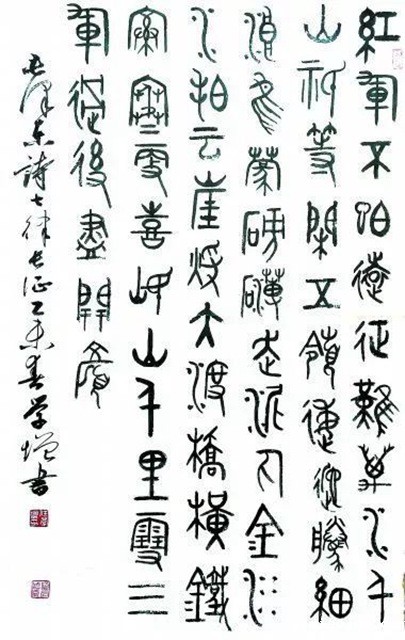 紅軍不怕遠征難萬水千
山祇等閑五嶺逶迤騰細
浪烏蒙磅礴走泥丸金沙
水拍云崖煖大渡橋橫鐵
索寒更喜岷山千里雪三
軍過後盡開顏
毛澤東詩七律長征乙未春学增書